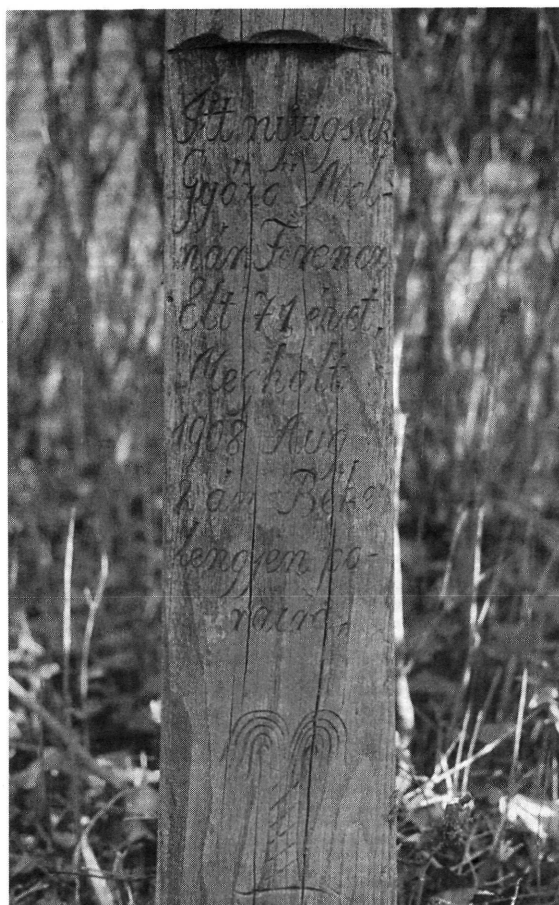 Itt nyugszik
Györö Mol-
nár Ferencz
Élt 71 évet,
Megholt
1908 Aug
2 án Béke
lengjen po-
raira,